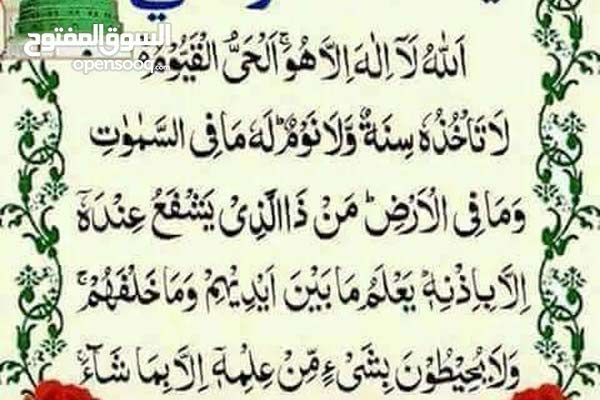 السوق المفتوح
opensooq.com
اَللّٰهُ لَاۤ اِلٰهَ اِلَّا هُوَۚ اَلْحَیُّ الْقَیُّوْمُ ۬ۚ
لَا تَاْخُذُهٗ سِنَةٌ وَّلَا نَوْمٌؕ لَهٗ مَا فِی السَّمٰوٰتِ
وَمَا فِی الْاَرْضِؕ مَنْ ذَا الَّذِیْ یَشْفَعُ عِنْدَهٗۤ
اِلَّا بِاِذْنِهٖؕ یَعْلَمُ مَا بَیْنَ اَیْدِیْهِمْ وَمَا خَلْفَهُمْۚ
وَلَا یُحِیْطُوْنَ بِشَیْءٍ مِّنْ عِلْمِهٖۤ اِلَّا بِمَا شَآءَۚ